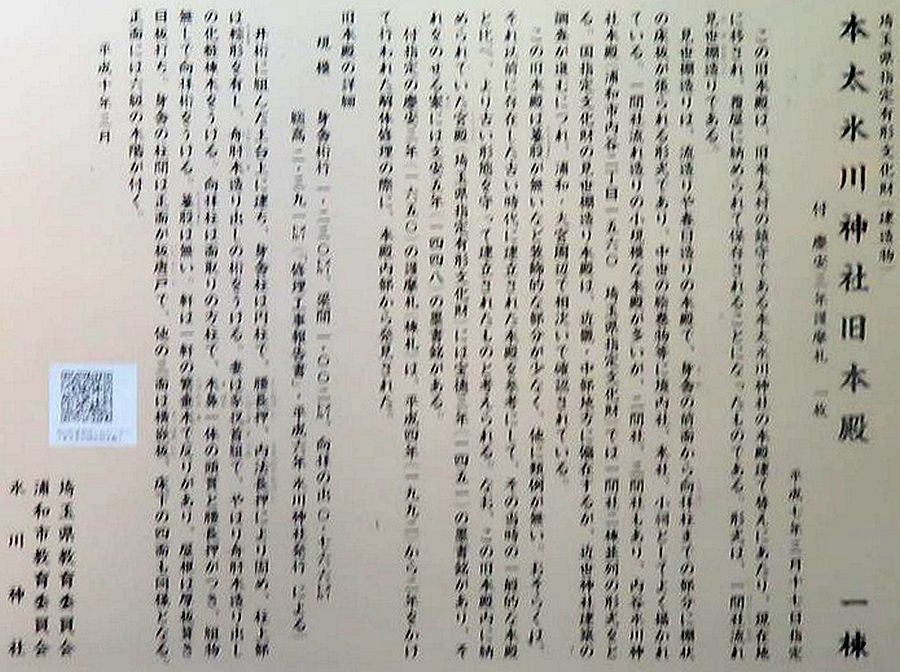 埼玉県指定有形文化財（建造物）
本太氷川神社旧本殿　一棟
付 慶安三年護摩札 一枚
平成七年三月十七日指定
この旧本殿は、旧本太村の鎮守である本太氷川神社の本殿建て替えにあたり、現在地
に移され、覆屋に納められて保存されることになったものである。形式は、一間社流れ
見世棚造りである。
見世棚造りは、流造りや春日造りの本殿で、身舎の前面から向拝柱までの部分に棚状
の床板が張られる形式であり、中世の絵巻物等に境内社、末社、小祠としてよく描かれ
ている。一間社流れ造りの小規模な本殿が多いが、二間社、三間社もあり、内谷氷川神
社本殿（浦和市内谷二丁目一五六〇 埼玉県指定文化財）では一間社二棟並列の形式をと
る。国指定文化財の見世棚造り本殿は、近畿・中部地方に偏在するが、近世神社建築の
調査が進むにつれ、浦和・大宮周辺で相次いで確認されている。
この旧本殿は蟇股が無いなど装飾的な部分が少なく、他に類例が無い。おそらくは、
それ以前に存在した古い時代に建立された本殿を参考にして、その当時の一般的な本殿
と比べ、より古い形態を守って建立されたものと考えられる。なお、この旧本殿内に納
められていた宮殿（埼玉県指定有形文化財）には宝徳三年（一四五一）の墨書銘があり、そ
れをのせる案には文安五年（一四四八）の墨書銘がある。
付指定の慶安三年（一六五〇）の護摩札（棟札）は、平成四年（一九九二）から三年をかけ
て行われた解体修理の際に、本殿内部から発見された。
旧本殿の詳細
規模　身舎桁行
総高
「修理工事報告書」・平成六年 氷川神社発行 による
井桁に組んだ土台上に建ち、身舎柱は円柱で、腰長押、内法長押により固め、柱上部
は粽形を有し、舟肘木造り出しの桁をうける。妻は豕扠首組で、やはり舟肘木造り出し
の化粧棟木をうける。向拝柱は面取りの方柱で、木鼻一体の頭貫と腰長押がつき、組物
無しで向拝桁をうける。蟇股は無い。軒は一軒の繁垂木で反りがあり、屋根は厚板葺き
目板打ち、身舎の柱間は正面が板唐戸で、他の三面は横嵌板、床下の四面も同様となる。
正面には六級の木階が付く。
平成十年三月
埼玉県教育委員会
浦和市教育委員会
氷川神社